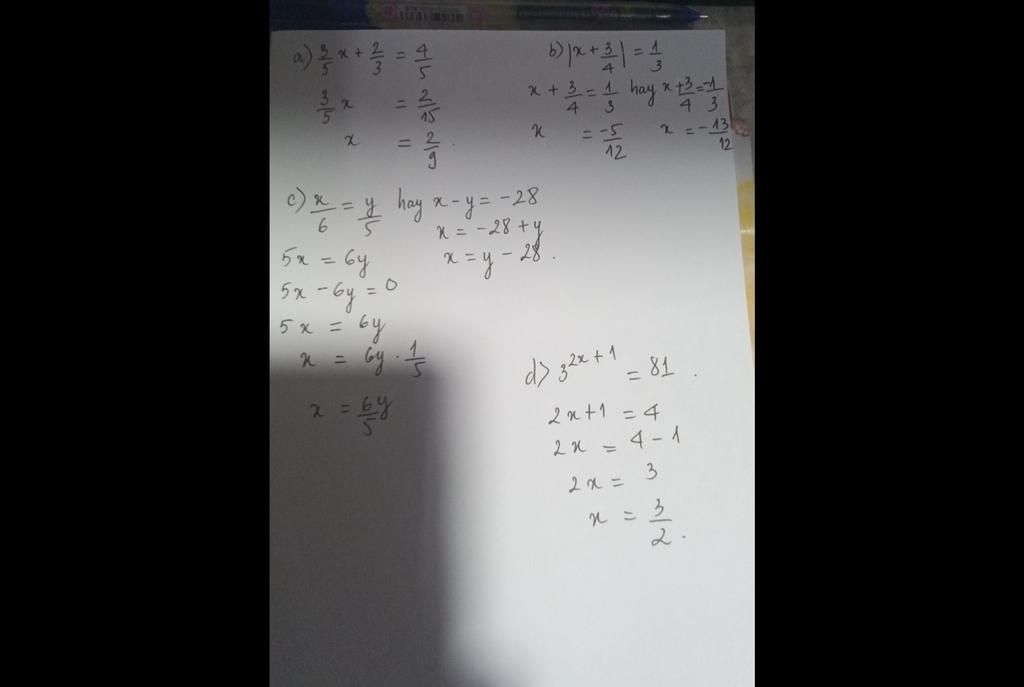 a) 3/5 x + 2/3 = 4/5
3/5 x = 2/15
x = 2/9.
b) |x + 3/4| = 1/3
x + 3/4 = 1/3 hay x + 3/4 = -1/3
x = -5/12 x = -13/12
c) x/6 = y/5 hay x - y = -28
x = -28 + y
x = y - 28.
5x = 6y
5x - 6y = 0
5x = 6y
x = 6y . 1/5
x = 6y/5
d) 3^(2x+1) = 81.
2x+1 = 4
2x = 4 - 1
2x = 3
x = 3/2.